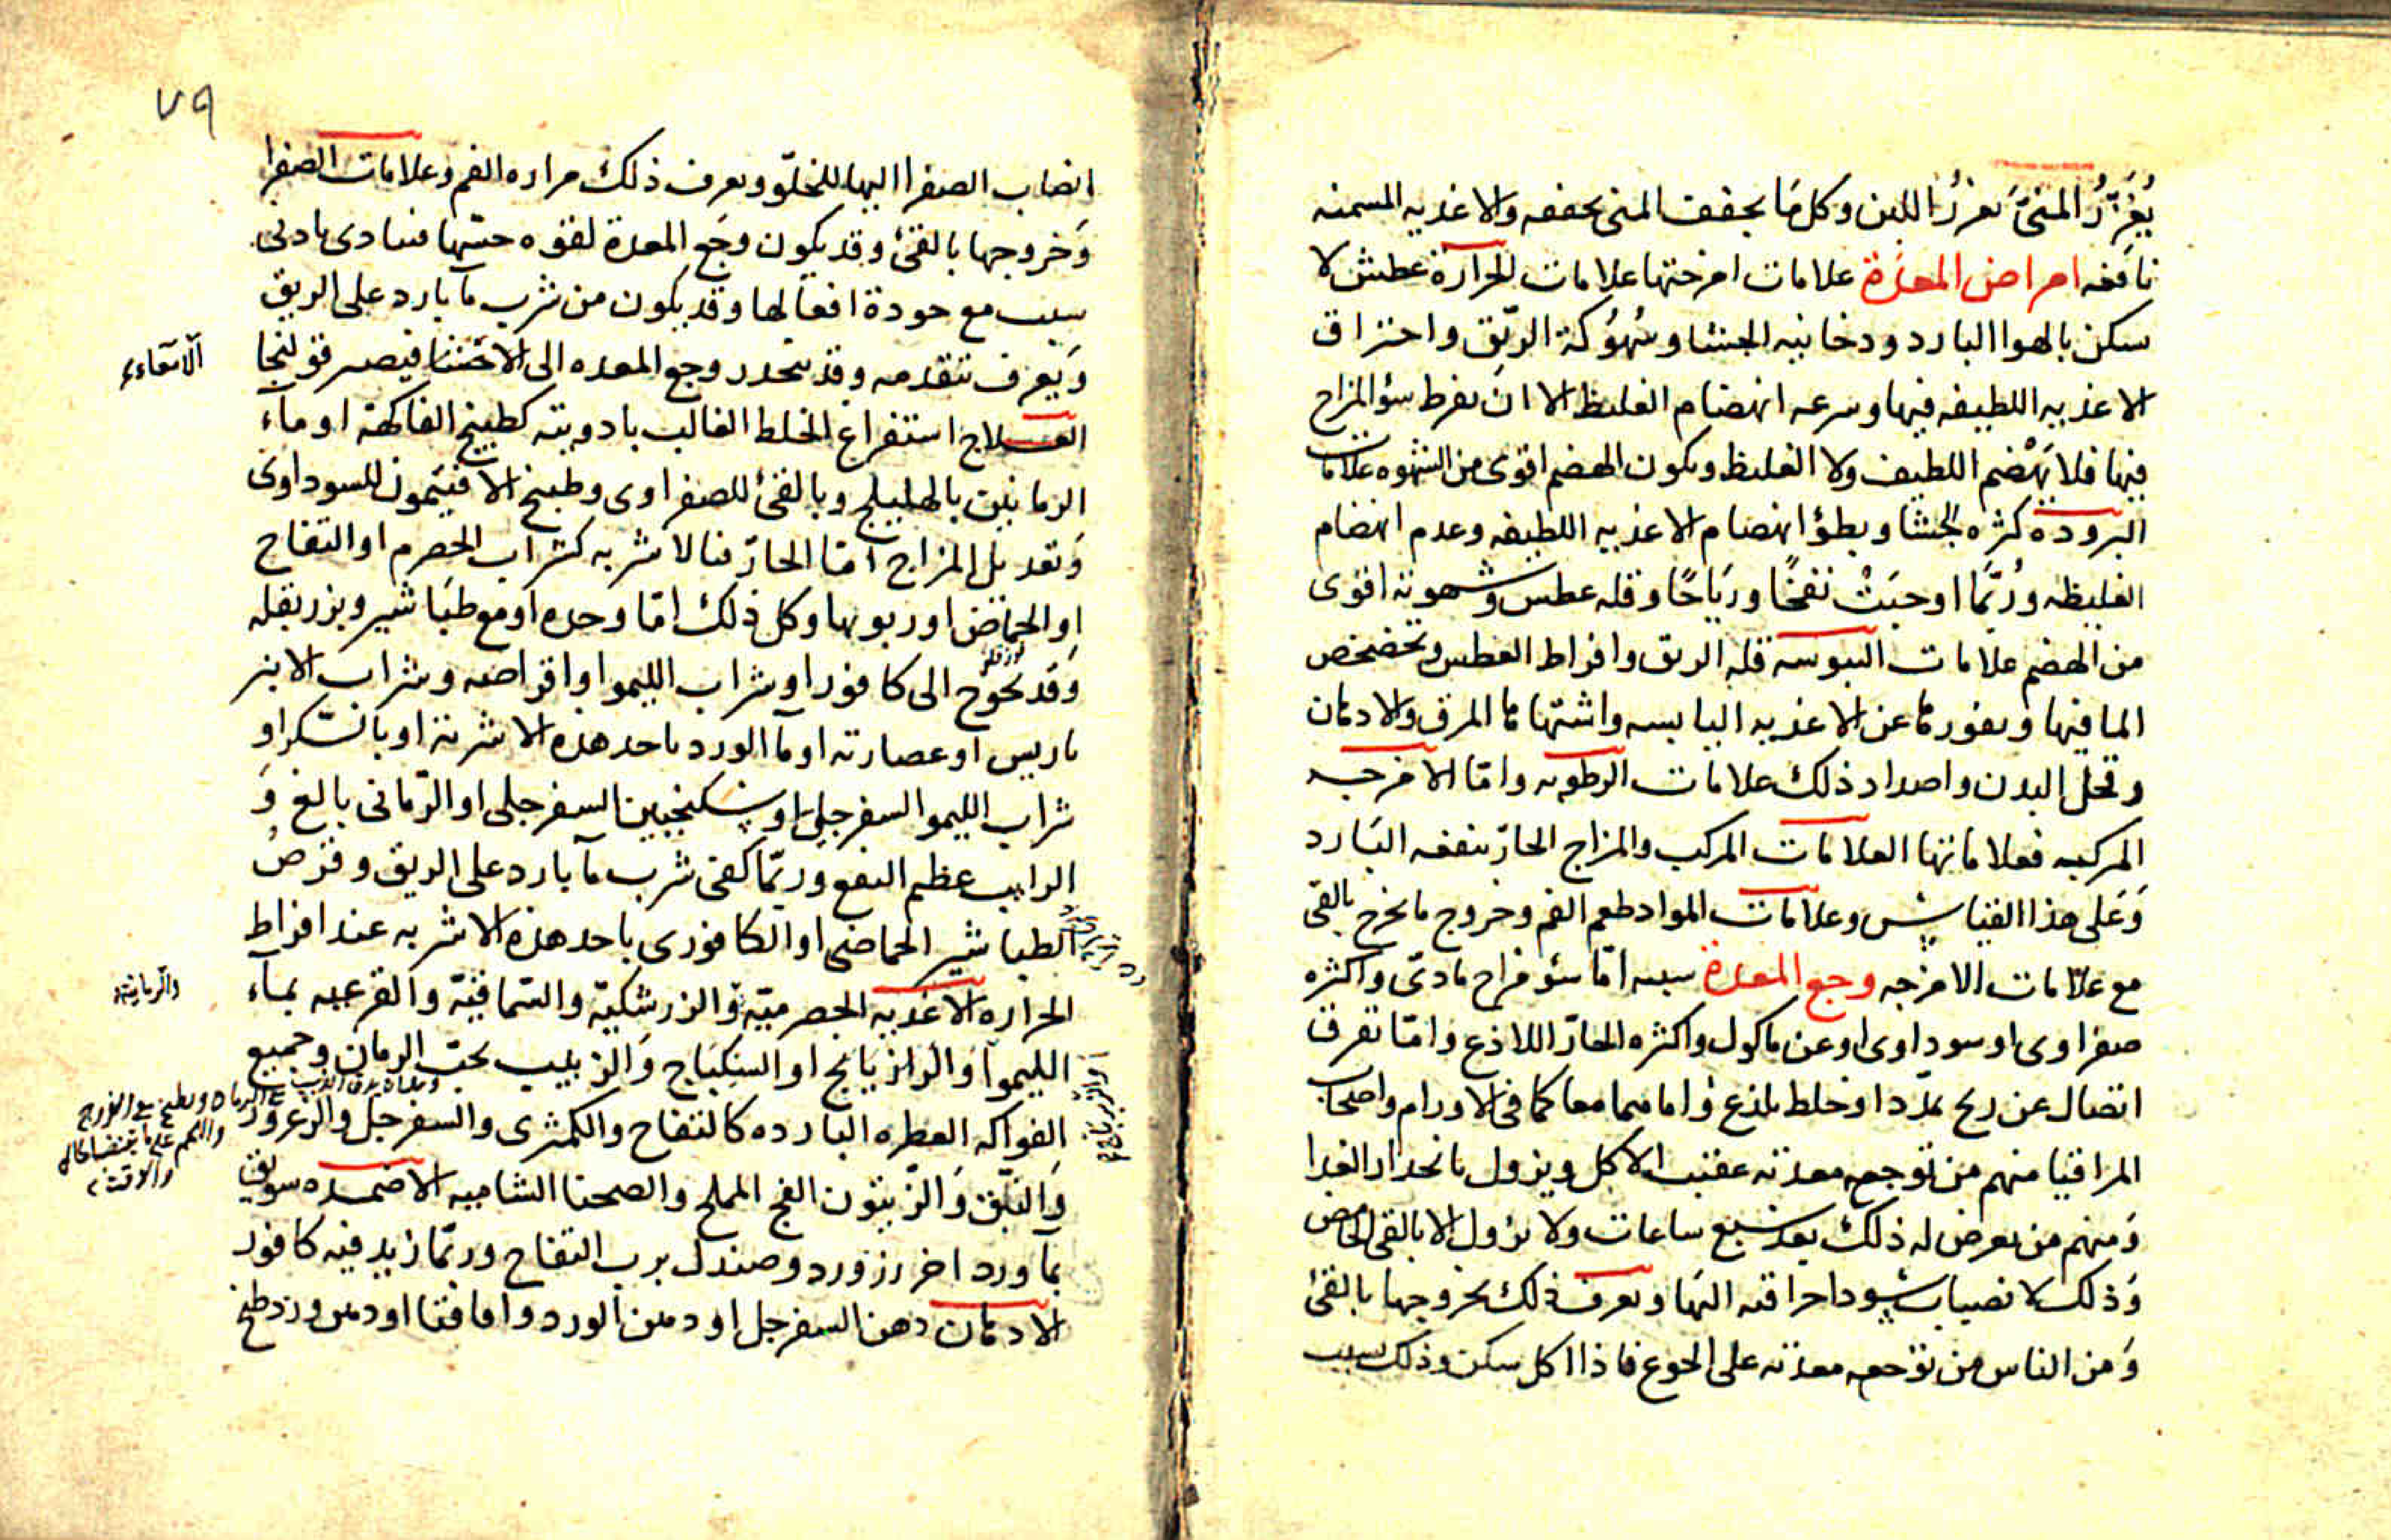 يُغَزِّرُ المنىَّ يغزرُ اللبن وكل مَا يجفف المنى يجففه والاغذيه المسمنه
نافعه امراض المعدة علامات امزجتها علامات الحرارة عطش لا
يسكن بالهوا البارد ودخانيه الجشا وسُهُوكة الريّق واحتراق
الاغذيه اللطيفه فيها وسرعه انهضام الغليظ الا ان يفرط سؤ المزاج
فيها فلا يَهْضم اللطيف ولا الغليظ ويكون الهضم اقوى من الشهوه علامات
البروده كثره الجشا وبطؤ انهضام الاغذيه اللطيفه وعدم انهضام
الغليظه ورُبّمَا اوجبَتْ نفخًا وريَاحًا وقله عطس وشهوته اقوى
من الهضم علامات اليبوسه قله الريق وافراط العطس وتخضخض
الما فيها ونفورها عن الاغذيه اليابسه واشتهاها المرق والادهان
وقحل البدن واضداد ذلك علامات الرطوبه وامّا الامزجه
المركبه فعلاماتها العلامات المركب والمزاج الحارّ ينفعه البَارد
وَعَلى هذا القياس وعلامات المواد طعم الفم وخروج ما يخرج بالقى
مع علامات الامزجه وجع المعدة سببه امّا سوْ مزاج مادىّ واكثره
صفراوى او سوداوى او عن ماكول واكثره الحارّ اللاذع وامّا تفرق
اتصال عن ريح يمدّد او خلط يلذع وامامهما معا كما فى الاورام واصحاب
المراقيا منهم من توجعه معدته عقيب الاكل ويزول بانحدار الغدا
وَمنهم من يعرض له ذلك بعد سبع ساعات ولا يزول الا بالقى الحامض
وَذلك لانصباب سودا حراقته اليها ويعرف ذلك بخروجها بالقئ
وَمن الناس من توجعه معدته على الجوع فاذا اكل سكن وذلك بسبب
٧٩
انصاب الصفرا اليها للخلوّ ويعرف ذلك مراره الفم وعلامات الصفرا
وَخروجها بالقئ وقد يكون وجَع المعدة لقوه حسّها فيتادى بادنى
سبب مع جودة افعالها وقد يكون من شرب مآ بارد على الريق
وَيعرف بتقدمه وقد ينحدر وجع المعده الى الاحشا فيصير قولنجا
العلاج استفراغ الخلط الغالب بادويته كطبيخ الفاكهة او مآء
الرمانين بالهليلج وبالقئ للصفراوى وطبيخ الافيتمون للسوداوى
وَتعديل المزاج امّا الحارّ فبالاشربه كشراب الحصرم او التفاح
او الحماض او ربوبها وكل ذلك امّا وحده او مع طبَاشير وبزر بقله
وَقد يحوج الى كافور او شراب الليموا واقراصه وشراب الانبر
باريس او عصارته او مآ الورد باحد هذه الاشربة او بالسّكر او
شراب الليمو السفرجلى او سكنجبين السفرجلى او الرّمانى بالغ وَ
الرايب عظيم النفع وربّما كفى شرب مآ بارد على الريق وقرصُ
الطباشير الحماضى او الكافورى باحد هذه الاشربه عند افراط
الحراره الاغذيه الحصرميّة والزرشكيّة والسّماقيّة والقرعيه بمآء
الليموا والرازيَانج او السِكبَاج وَالزبيب بحبّ الرمان وجميع
الفواكه العطره البارده كالتفاح والكمثرى والسفرجل والزعرور
وَالنبّق وَالزّيتون الفج المملح والصحنا الشاميه الاضمده سويق
بمآ ورد اخر زرورد وصندل برب التفاح وربّما زيد فيه كافور
الادهان دهن السفرجل او دهن الورد وامّا قثا او دهن ورد طبخ
الامعاء
والرمانية